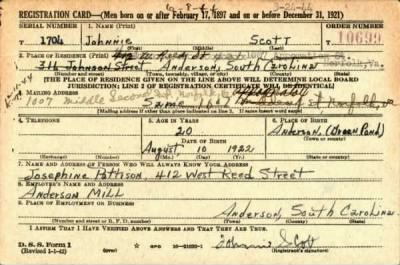 REGISTRATION CARD—(Men born on or after February 17, 1897 and on or before December 31, 1921)
SERIAL NUMBER 1. NAME (Print) ORDER NUMBER
1704 Johnnie Scott 10699
(First) (Middle) (Last)
2. PLACE OF RESIDENCE (Print)
Norfolk, Va.
316 Johnson Street Anderson, South Carolina
(Number and street) (Town, township, village, or city) (County) (State)
[THE PLACE OF RESIDENCE GIVEN ON THE LINE ABOVE WILL DETERMINE LOCAL BOARD
JURISDICTION; LINE 2 OF REGISTRATION CERTIFICATE WILL BE IDENTICAL]
3. MAILING ADDRESS
1007 Middle
Same 1007 St Norfolk, Va
4. TELEPHONE 5. AGE IN YEARS 6. PLACE OF BIRTH
20 Anderson,
DATE OF BIRTH
August 10 1922
(Mo.) (Day) (Yr.)
7. NAME AND ADDRESS OF PERSON WHO WILL ALWAYS KNOW YOUR ADDRESS
Josephine Pattison, 412 West Reed Street
8. EMPLOYER'S NAME AND ADDRESS
Anderson Mill
9. PLACE OF EMPLOYMENT OR BUSINESS
Anderson, South Carolina
(Number and street or R. F. D. number) (Town) (County) (State)
I AFFIRM THAT I HAVE VERIFIED ABOVE ANSWERS AND THAT THEY ARE TRUE.
D. S. S. Form 1
(Revised 1-1-42) GPO 16-21630-1 Scott
(Registrant's signature)